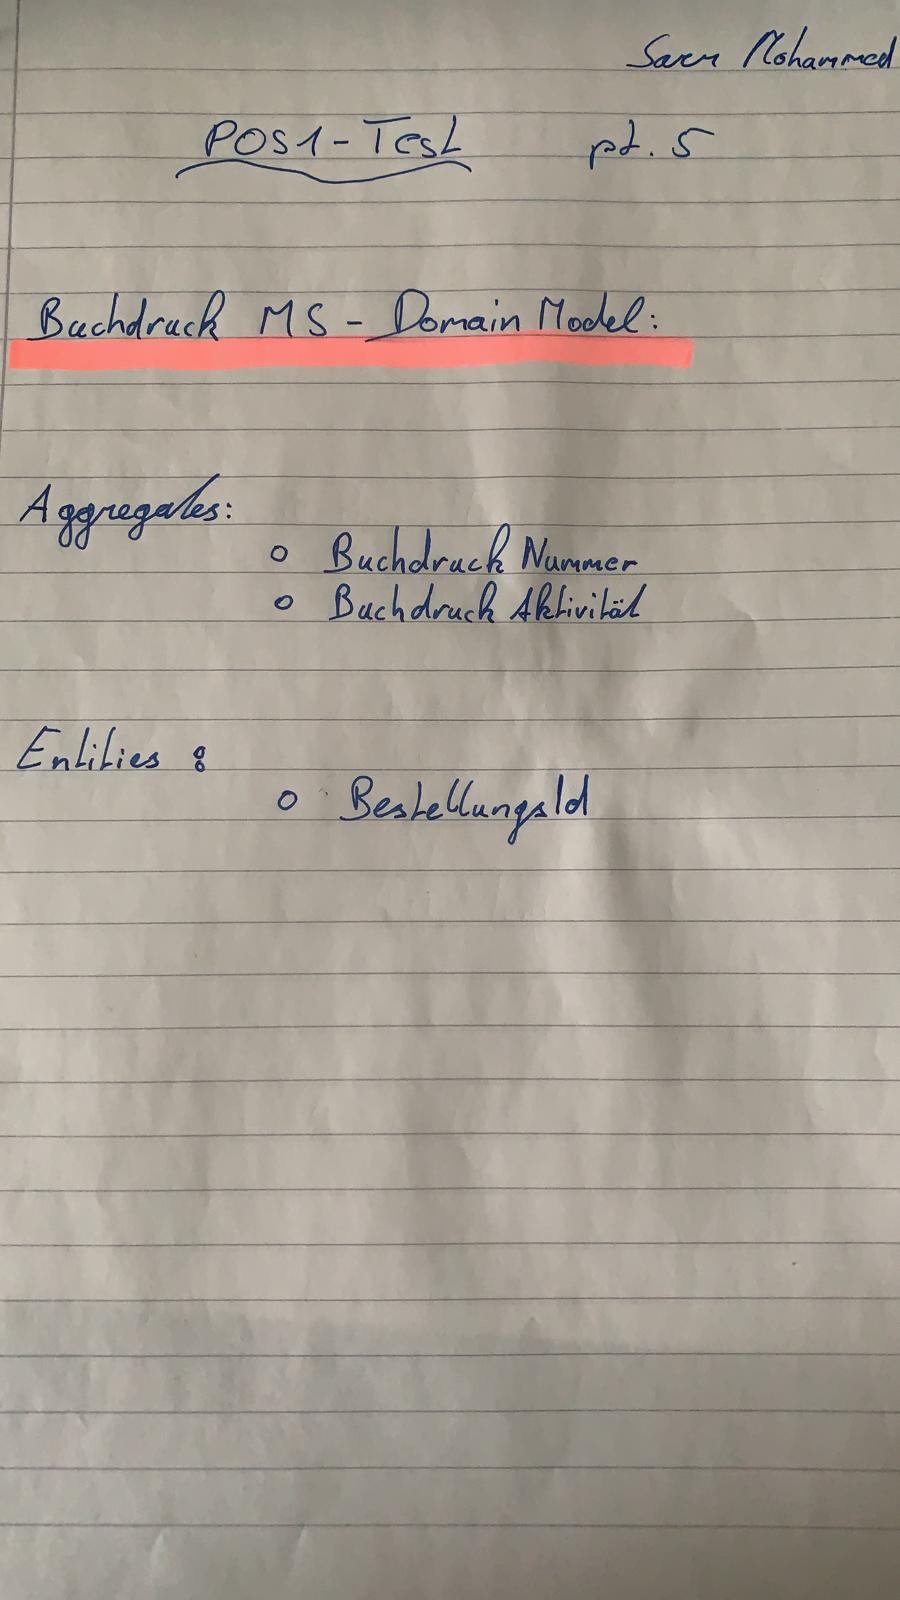 Sarem Mohammed
POS1-Test pt. 5
Buchdruck MS - Domain Model:
Aggregates:
o Buchdruck Nummer
o Buchdruck Aktivität
Entities :
o BestellungsId